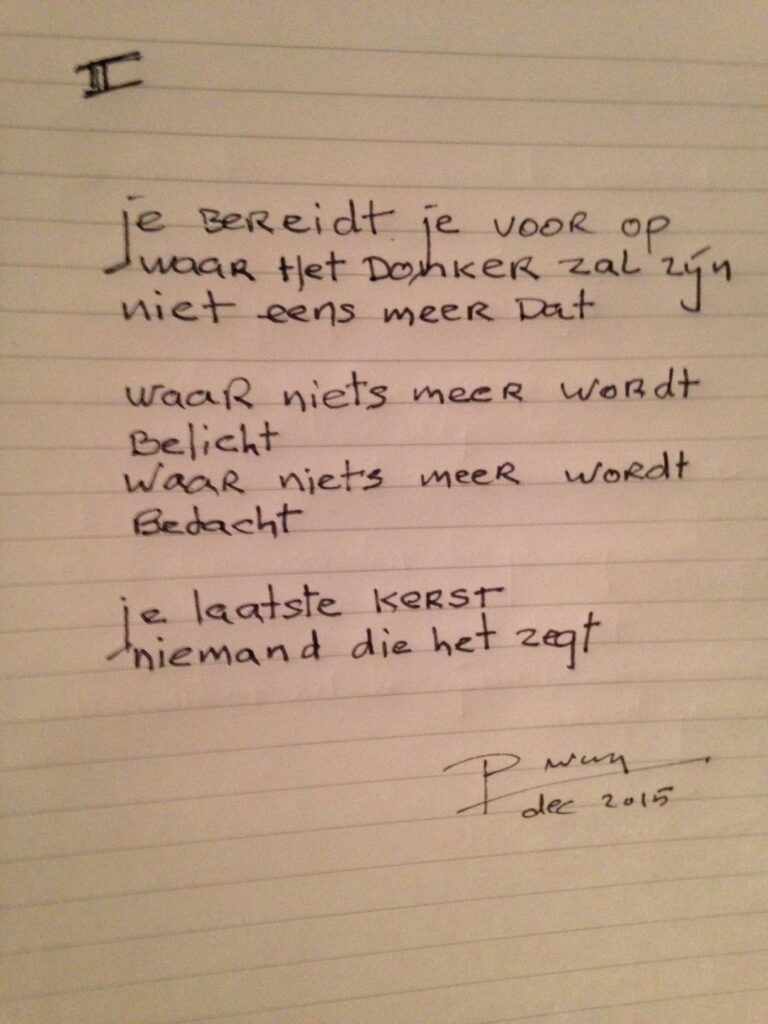 II
je bereidt je voor op
waar het donker zal zijn
niet eens meer dat
waar niets meer wordt
belicht
waar niets meer wordt
bedacht
je laatste kerst
niemand die het zegt
dec 2015